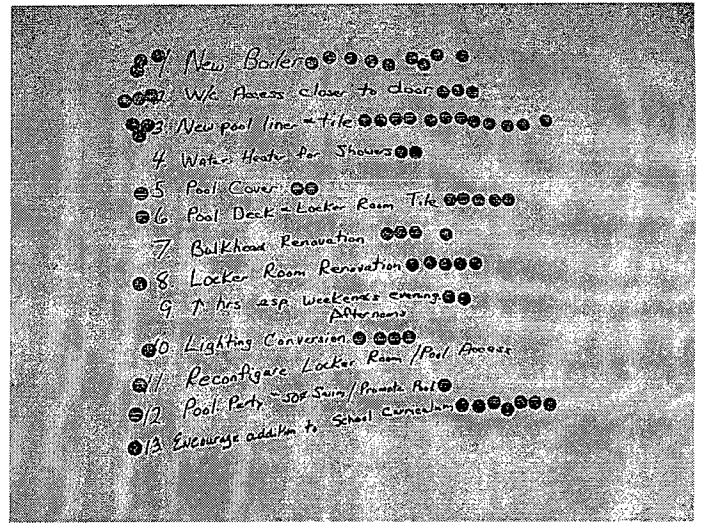 1. New Boiler
2. W/c Access closer to door
3. New pool liner + tile
4. Water Heater for Showers
5. Pool Cover
6. Pool Deck + Locker Room Tile
7. Bulkhead Renovation
8. Locker Room Renovation
9. ↑ hrs esp. Weekends evening.
Afternoons
10. Lighting Conversion
11. Reconfigure Locker Room / Pool Access
12. Pool Party - 50¢ Swim / Promote Pool
13. Encourage addition to School Curriculum